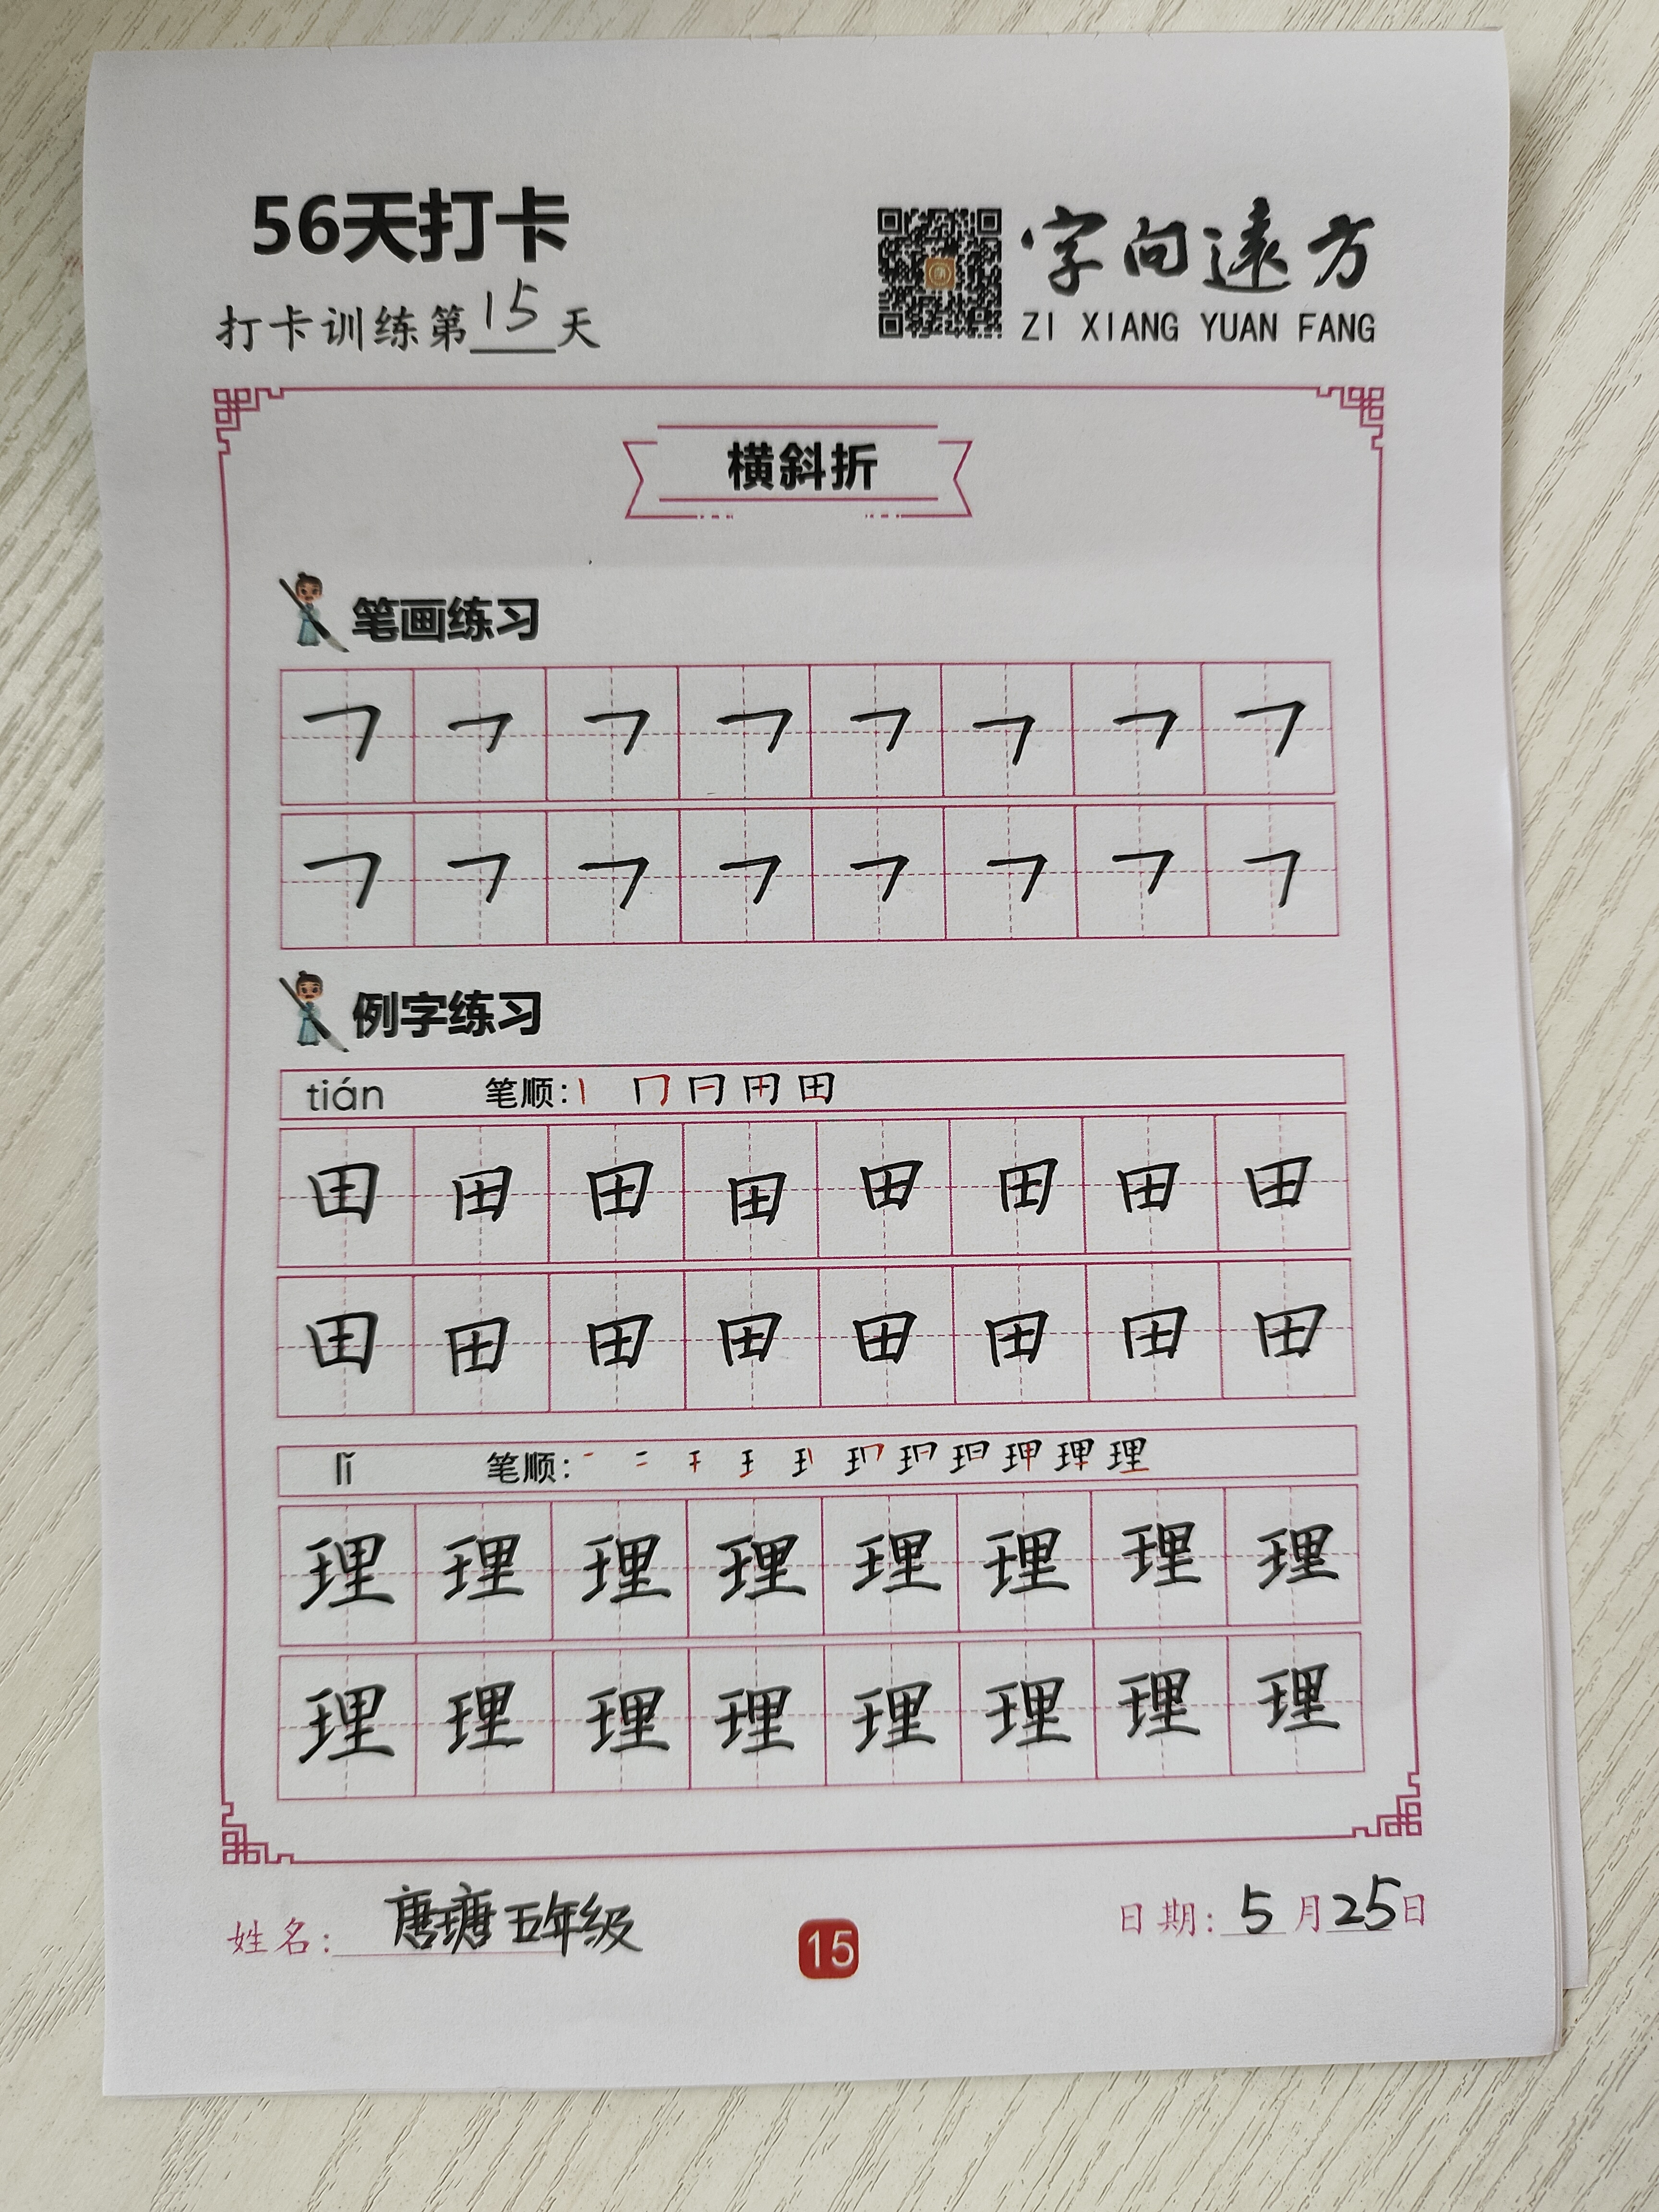 56天打卡
打卡训练第15天
字向遠方
ZI XIANG YUAN FANG
横斜折
笔画练习
㇕ ㇕ ㇕ ㇕ ㇕ ㇕ ㇕ ㇕
㇕ ㇕ ㇕ ㇕ ㇕ ㇕ ㇕ ㇕
例字练习
tián 笔顺:
田 田 田 田 田 田 田 田
田 田 田 田 田 田 田 田
lǐ 笔顺:
理 理 理 理 理 理 理 理
理 理 理 理 理 理 理 理
姓名: 唐瑭 五年级
15
日期: 5月25日